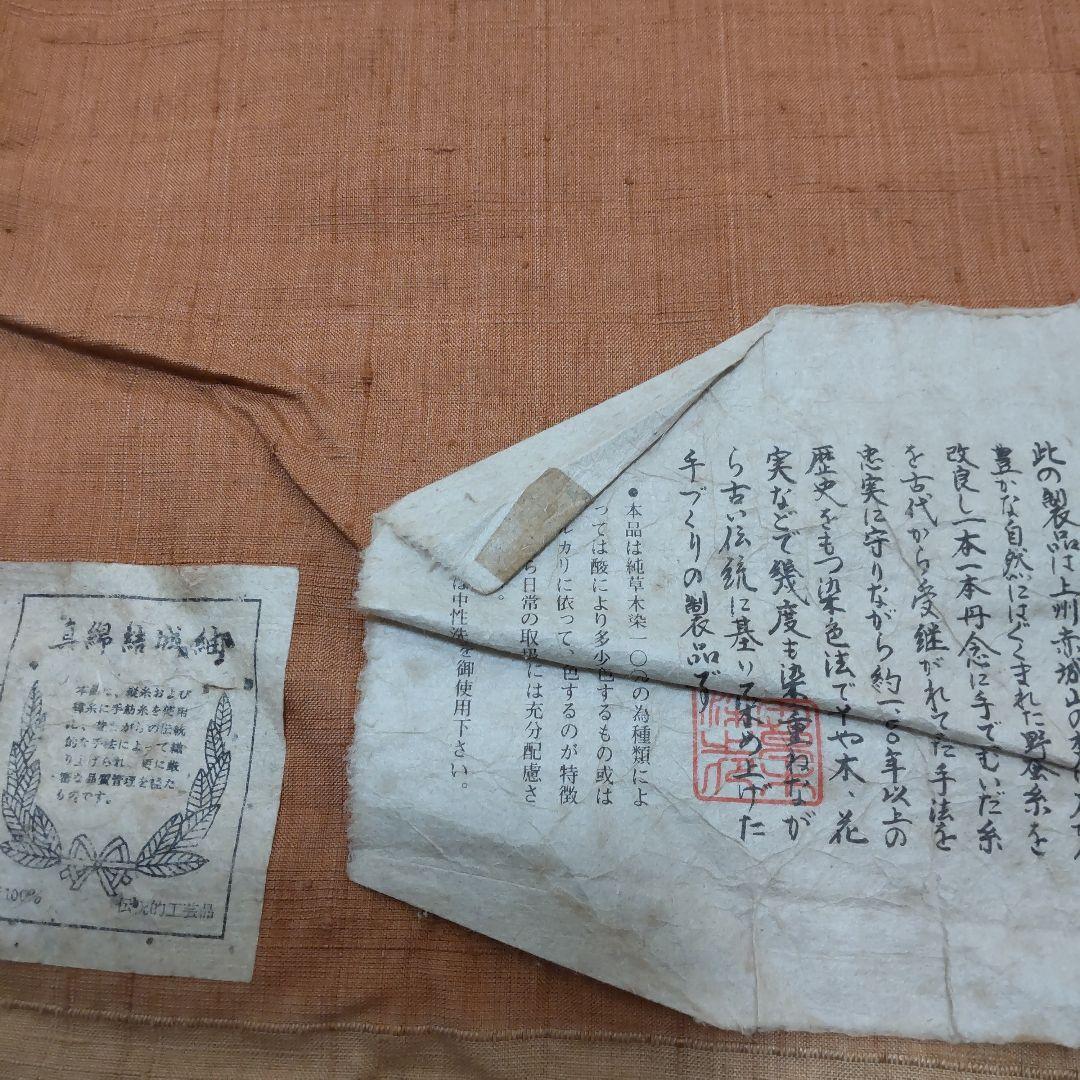 真綿結城紬
本品は、縦糸および
緯糸に手紡糸を使用
し、昔ながらの伝統
的な手法によって織
り上げられ、更に厳
密な品質管理を経た
ものです。
100%
伝統的工芸品
此の製品は上州赤城山の
豊かな自然にはぐくまれた野蚕糸を
改良し一本一本丹念に手でつむいだ糸
を古代から受継がれてた手法を
忠実に守りながら約一、〇〇年以上の
歴史をもつ染色法で草や木、花
実などで幾度も染重ねなが
ら古い伝統に基いて染め上げた
手づくりの製品です
●本品は純草木染一〇〇%の為種類によ
っては酸により多少色するもの或は
ルカリに依って、色するのが特徴
ら日常の取扱には充分配慮さ
。
は中性洗を御使用下さい。